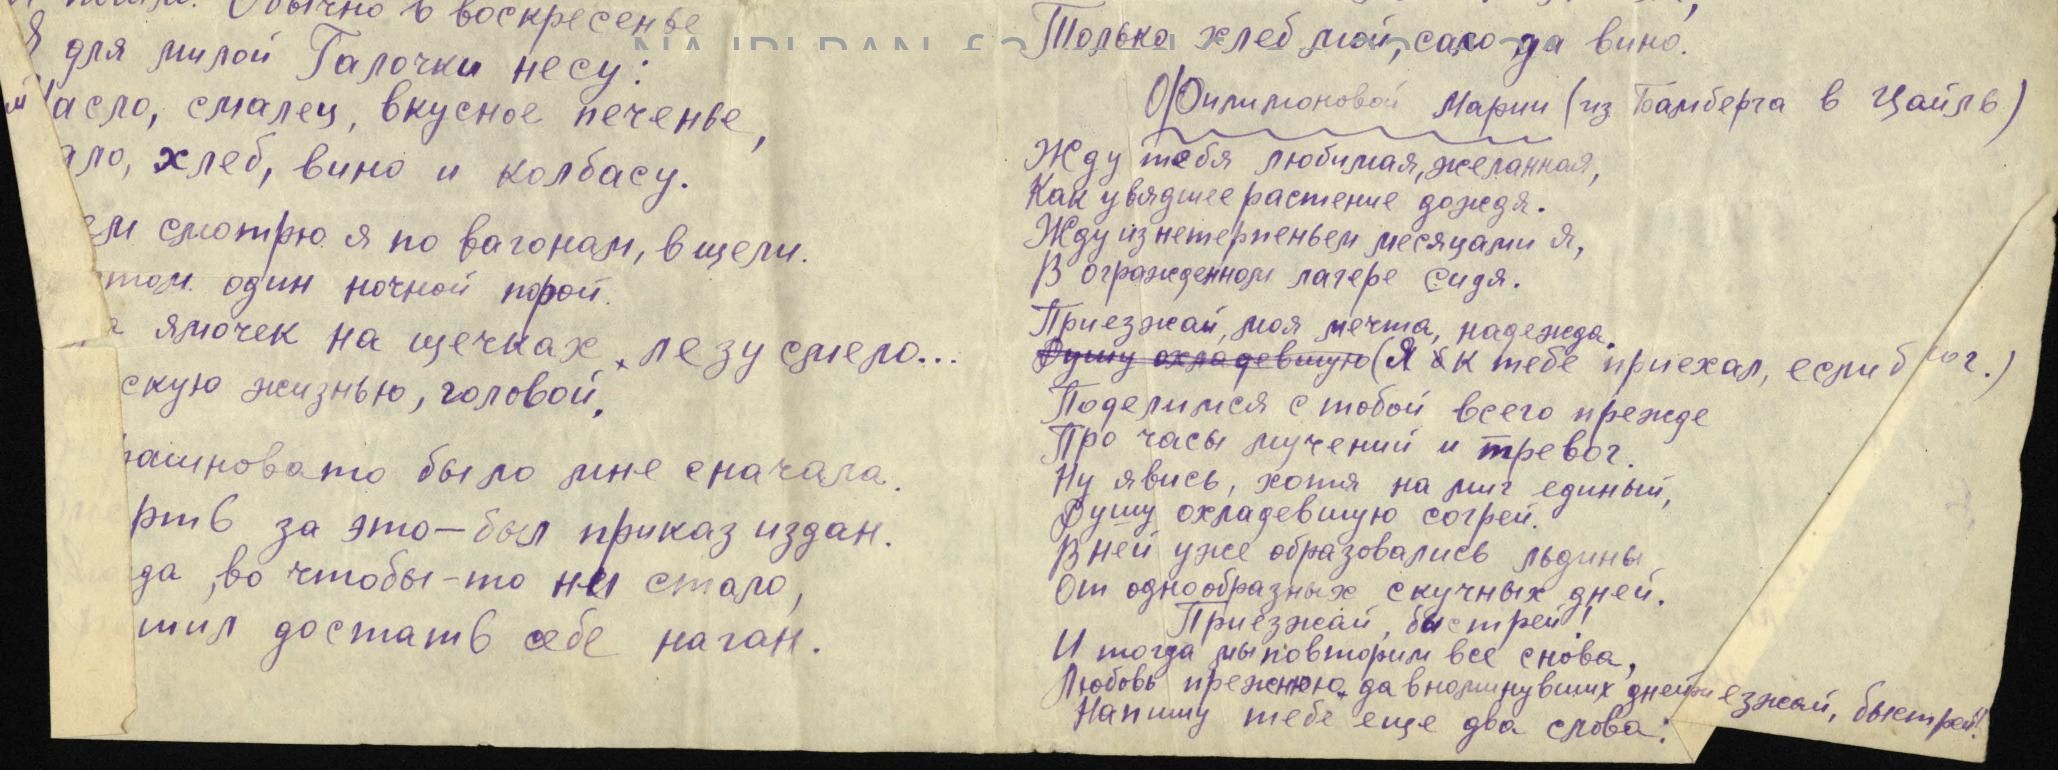 Обычно в воскресенье
Я для милой Галочки несу:
Масло, смалец, вкусное печенье,
ало, хлеб, вино и колбасу.
ем смотрю я по вагонам, в щели.
том один ночной порой.
а ямочек на щечках, лезу смело...
скую жизнью, головой.
рашновато было мне сначала.
рть за это — был приказ издан.
да, во чтобы-то ни стало,
шил достать себе наган.
Только хлеб мой, сало да вино.
Филимоновой Марии (из Бамберга в Цайль)
Жду тебя любимая, желанная,
Как увядшее растение дождя.
Жду из нетерпеньем месяцами я,
В огражденном лагере сидя.
Приезжай, моя мечта, надежда.
Душу охладевшую (Я к тебе приехал, если б мог.)
Поделимся с тобой всего прежде
Про часы мучений и тревог.
Ну явись, хотя на миг единый,
Душу охладевшую согрей.
В ней уже образовались льдины
От однообразных скучных дней.
Приезжай, быстрей!
И тогда мы повторим все снова,
Любовь прежнюю да вноминувших дней
Приезжай, быстрей!
Напишу тебе еще два слова: